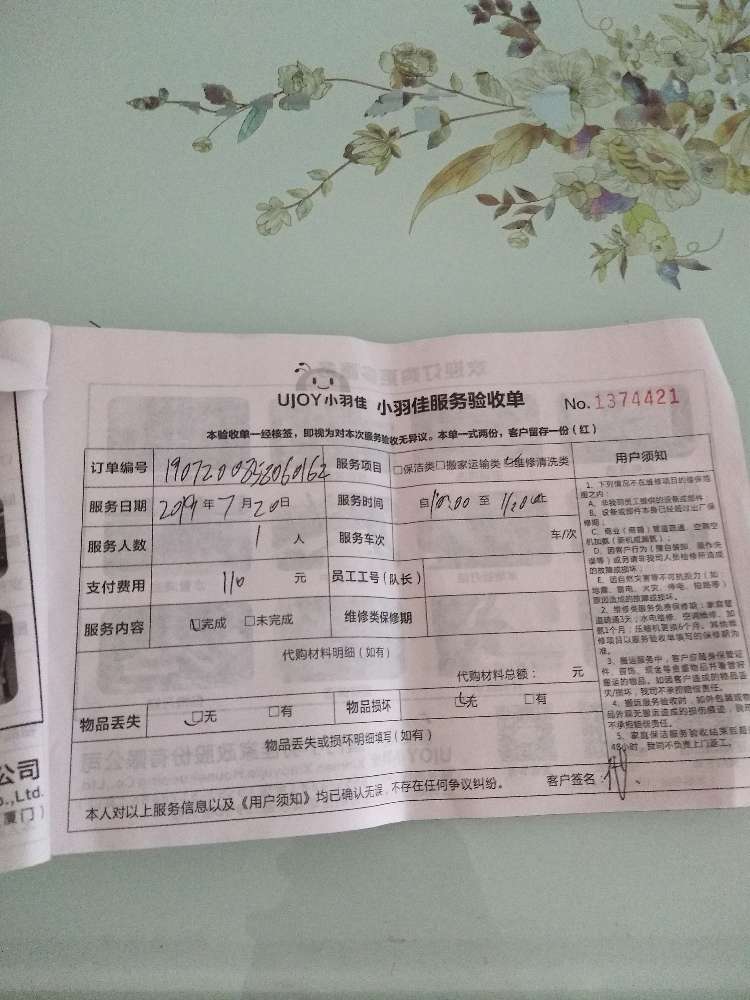 UJOY小羽佳 小羽佳服务验收单 No.1374421
本验收单一经核签，即视为对本次服务验收无异议。本单一式两份，客户留存一份（红）
订单编号 服务项目 □保洁类□搬家运输类□维修清洗类
服务日期 2019年7月20日 服务时间 自10:00至
服务人数 1人 服务车次 车/次
支付费用 110元 员工工号（队长）
服务内容 □完成 □未完成 维修类保修期
代购材料明细（如有）
代购材料总额： 元
物品丢失 □无 □有 物品损坏 □无 □有
物品丢失或损坏明细填写（如有）
本人对以上服务信息以及《用户须知》均已确认无误，不存在任何争议纠纷。 客户签名：
用户须知
1、下列情况不在维修项目的维保范
围之内：
A、非我司员工提供的设备或部件
B、设备或部件本身已经超过出厂保
修期；
D、因客户行为（擅自装卸、操作失
误等）或另请非我司人员检修所造成
的故障或损坏；
E、因自然灾害等不可抗拒力（如：
地震、雷电、火灾、停电、短路等）
原因造成的故障或损坏。
2、维修类服务免费保修期：家庭管
道疏通3天；水电维修、空调维修、加
氨1个月；压缩机更换6个月。其他维
修项目以服务验收单填写的保修期为
准。
3、搬运服务中，客户应随身保管证
件、首饰、现金等贵重物品并看管好
搬运的物品。如因客户造成的物品丢
失/损坏，我司不承担赔偿责任。
4、搬运服务验收时，如外包装或物
不承担赔偿责任。
5、家庭保洁服务验收结束后超
48小时，我司不负责上门返工。
公司
o.,Ltd.
厦门）